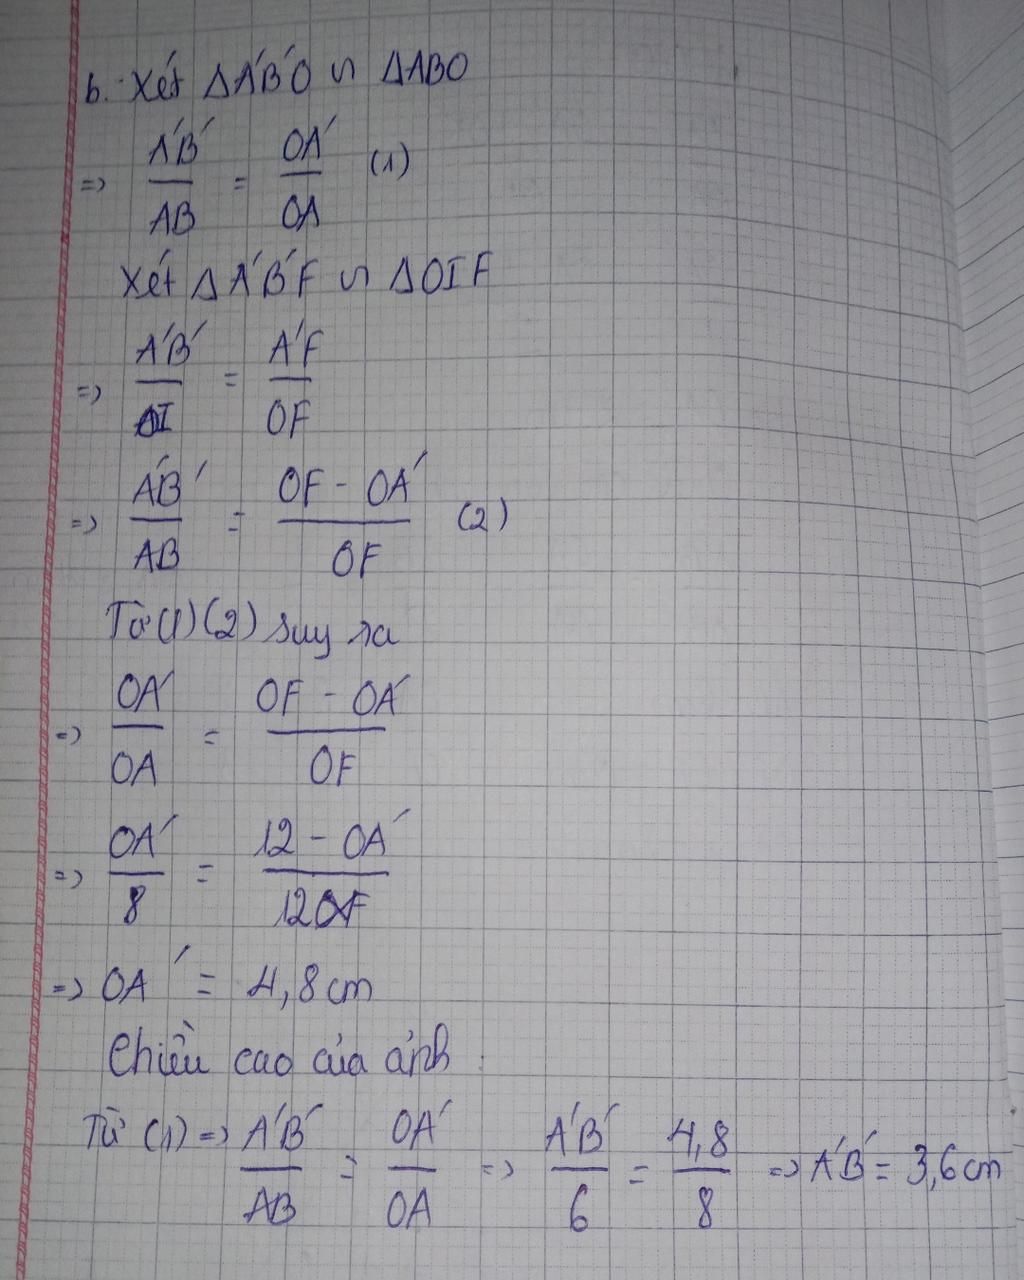 b. Xét ΔA'B'O ∽ ΔABO
=> A'B'/AB = OA'/OA (1)
Xét ΔA'B'F ∽ ΔOIF
=> A'B'/OI = A'F/OF
=> A'B'/AB = OF - OA'/OF (2)
Từ (1)(2) suy ra
=> OA'/OA = OF - OA'/OF
=> OA'/8 = 12 - OA'/12
=> OA' = 4,8cm
Chiều cao của ảnh:
Từ (1) => A'B'/AB = OA'/OA => A'B'/6 = 4,8/8 => A'B' = 3,6cm